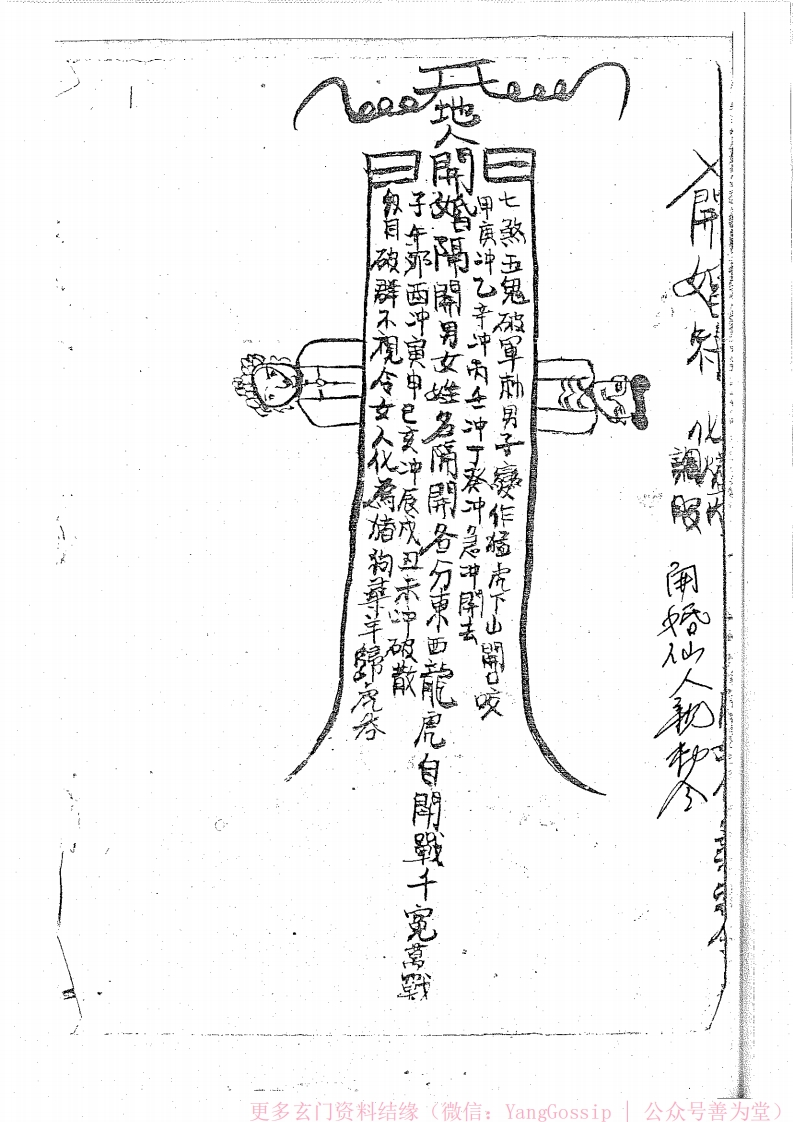 開婚符
化燒
調服
開婚仙人親勅令
天
地
人
開婚隔開男女姓名隔開各分東西龍虎自開戰千冤萬戰
七煞五鬼破軍刺男子變作猛虎下山開口咬
甲庚冲乙辛冲丙壬冲丁癸冲急冲開去
子午卯酉冲寅申巳亥冲辰戌丑未冲破散
目破群不視令女人化為猪狗羊歸虎吞
更多玄门资料结缘（微信：YangGossip | 公众号善为堂）